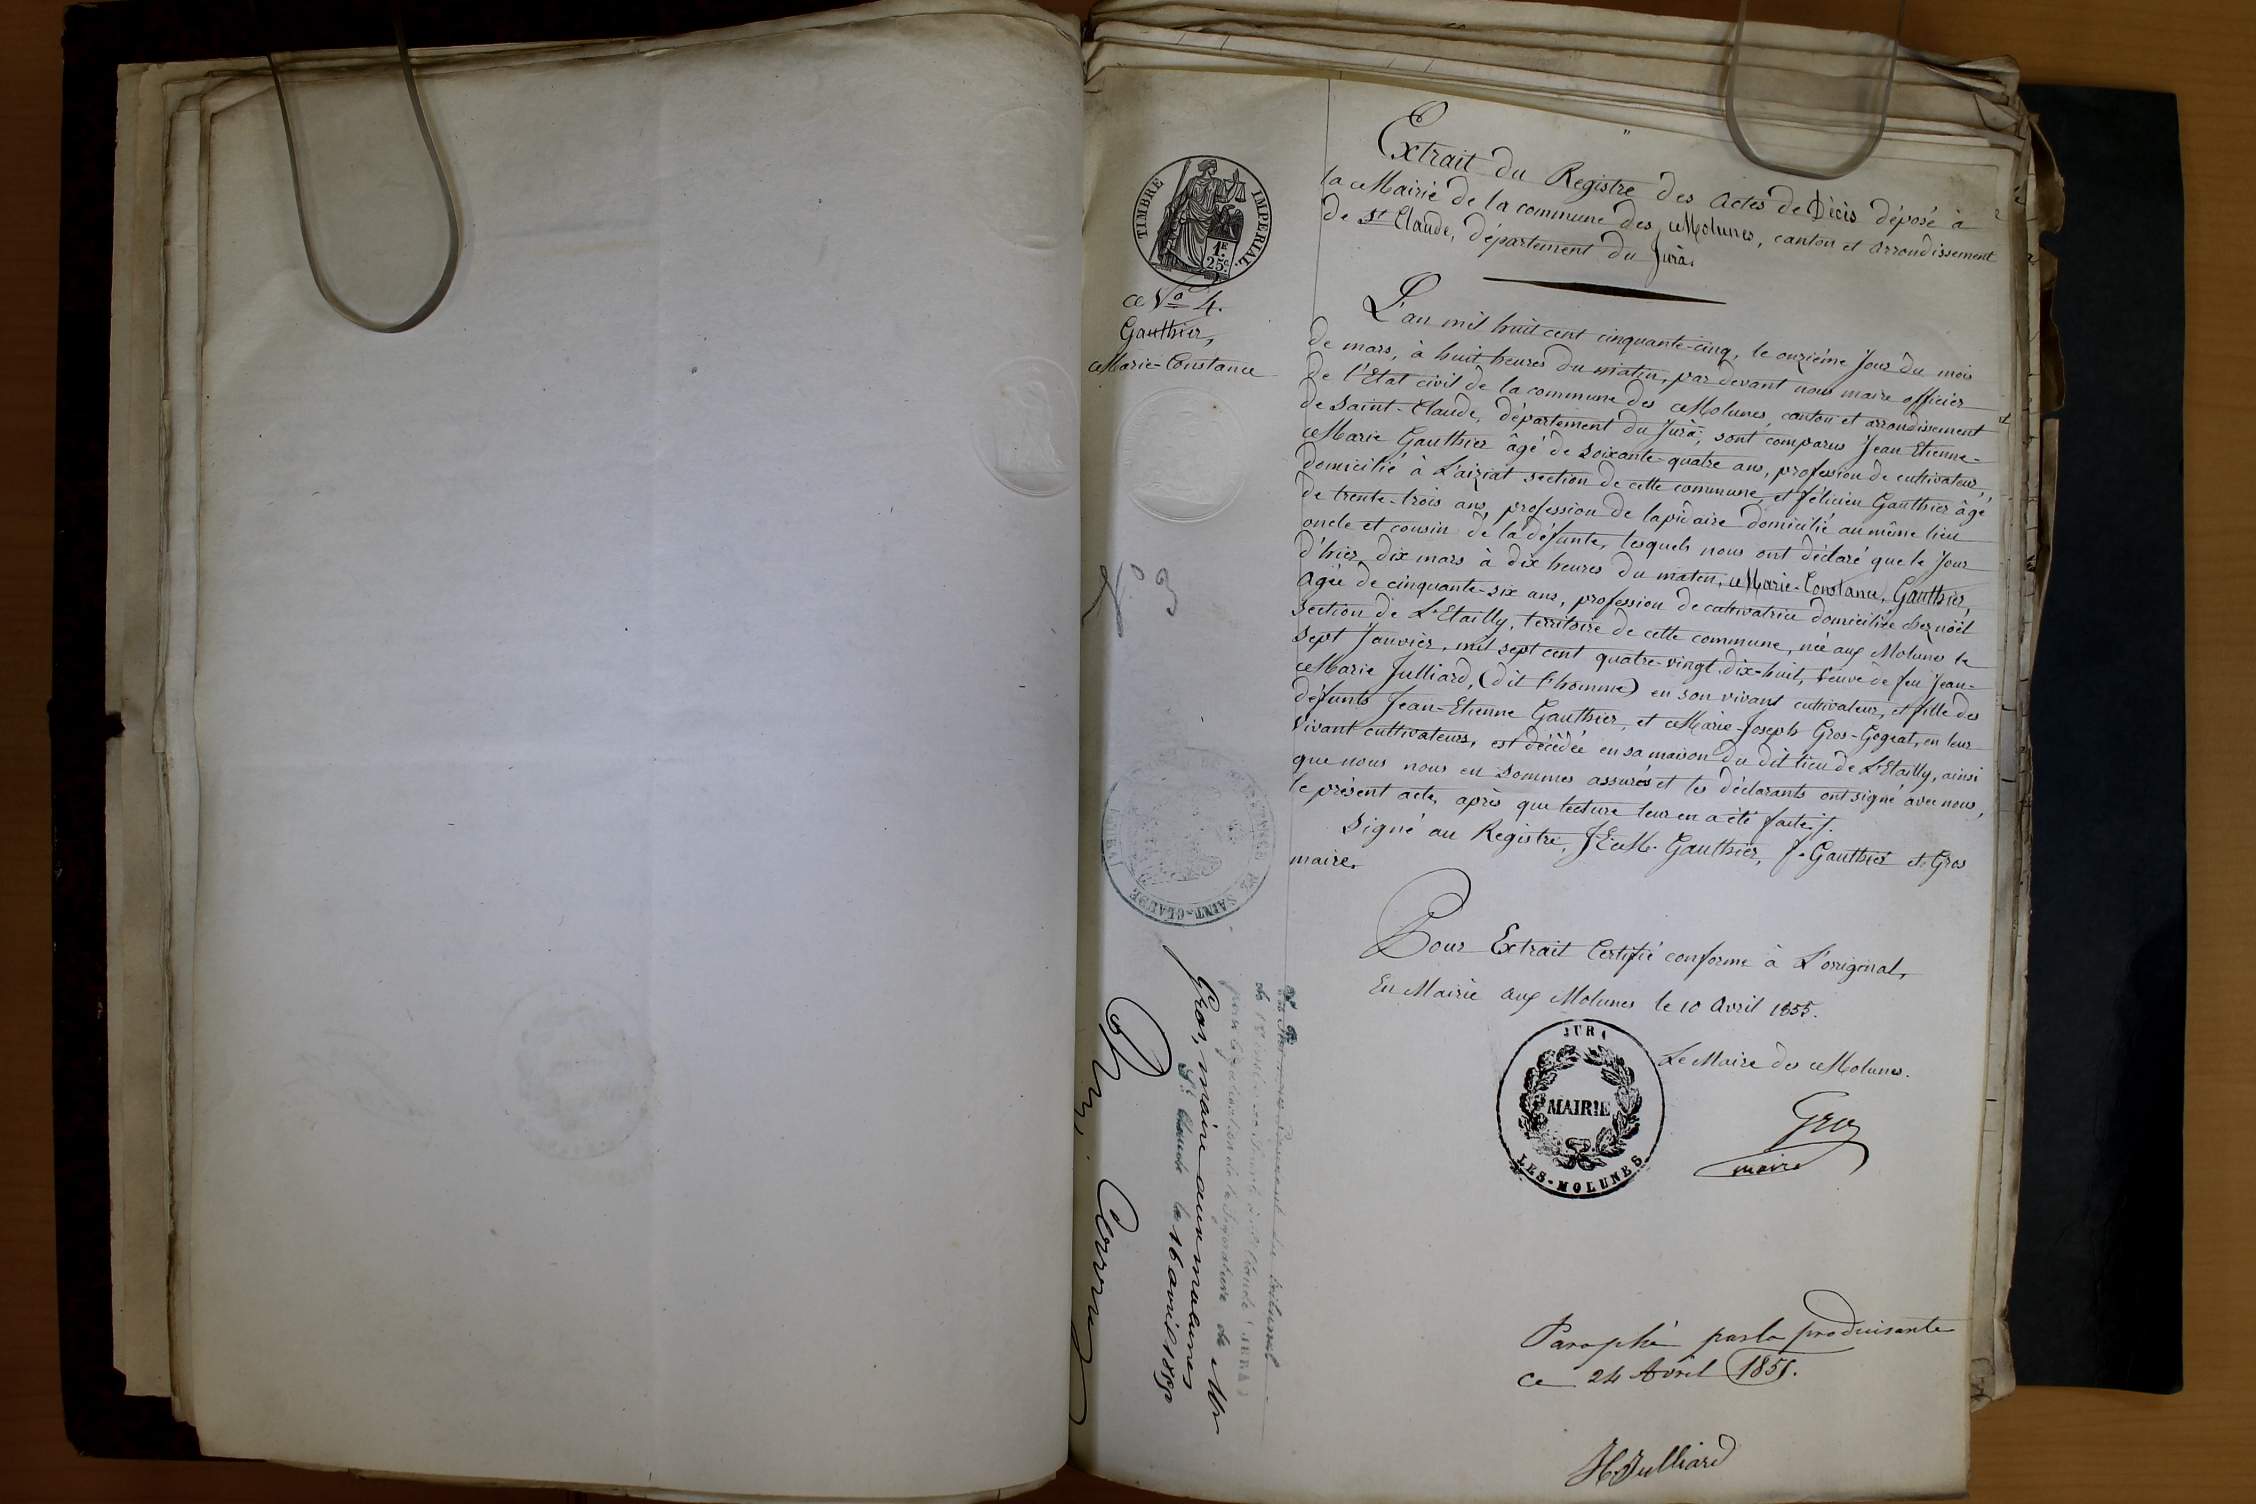 Extrait du Registre des Actes de Décès déposé à
la Mairie de la commune des Molunes, canton et arrondissement
de St Claude, département du Jura.
TIMBRE IMPERIAL
1F. 25c.
No 4.
Gauthier,
Marie-Constance
L'an mil huit cent cinquante-cinq, le onzième jour du mois
de mars, à huit heures du matin, par devant nous maire officier
de l'Etat civil de la commune des Molunes, canton et arrondissement
de Saint-Claude, département du Jura, sont comparus Jean Etienne-
Marie Gauthier âgé de soixante-quatre ans, profession de cultivateur,
domicilié à L'aiziat section de cette commune, et félicien Gauthier âgé
de trente-trois ans, profession de lapidaire domicilié au même lieu
oncle et cousin de la défunte, lesquels nous ont déclaré que le jour
d'hier dix mars à dix heures du matin, Marie-Constance, Gauthier,
agée de cinquante-six ans, profession de cultivatrice domiciliée chez noël
section de L'Etailly, territoire de cette commune, née aux Molunes le
sept Janvier, mil sept cent quatre-vingt-dix-huit, veuve de feu Jean-
Marie Julliard, (dit l'homme) en son vivant cultivateur, et fille des
défunts Jean-Etienne Gauthier, et Marie-Joseph Gros-Gogeat, en leur
vivant cultivateurs, est décédée en sa maison du dit lieu de L'Etailly, ainsi
que nous nous en sommes assurés et les déclarants ont signé avec nous,
le présent acte, après que lecture leur en a été faite./.
Signé au Registre, J.E.M. Gauthier, f. Gauthier et Gros
maire.
Pour Extrait Certifié conforme à L'original,
En Mairie aux Molunes le 10 Avril 1855.
Le Maire des Molunes.
JURA
MAIRIE
LES-MOLUNES
Gros
maire
Paraphé par la produisante
ce 24 Avril 1855.
H. Julliard
SAINT-CLAUDE
(JURA)
tribunal
St Claude (JURA)
pour légalisation de la signature de Mr
Gros, maire aux molunes
St Claude le 16 avril 1855